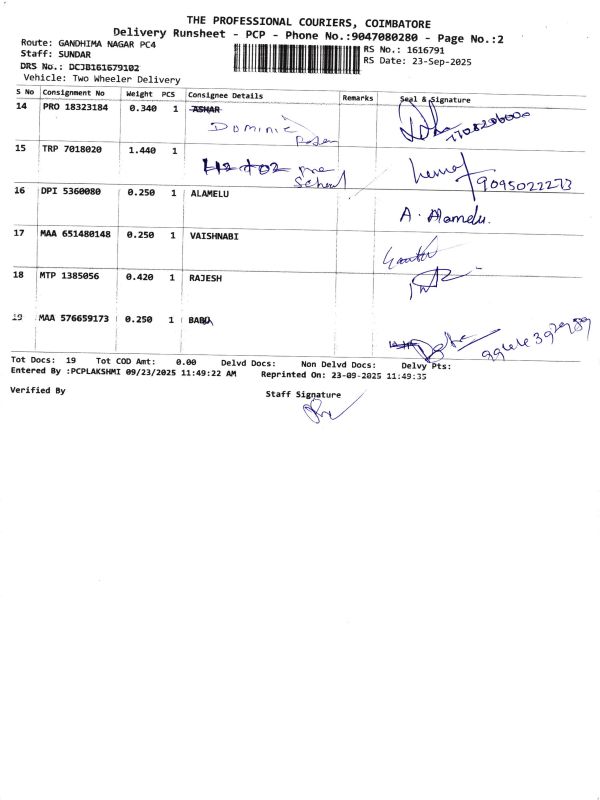 THE PROFESSIONAL COURIERS, COIMBATORE
Delivery Runsheet - PCP - Phone No.:9047080280 - Page No.:2
Route: GANDHIMA NAGAR PC4
Staff: SUNDAR
DRS No.: DCJB161679102
Vehicle: Two Wheeler Delivery
RS No.: 1616791
RS Date: 23-Sep-2025
S No Consignment No Weight PCS Consignee Details Remarks Seal & Signature
14 PRO 18323184 0.340 1 ASHAR
Dominic
15 TRP 7018020 1.440 1
School
9095022273
16 DPI 5360080 0.250 1 ALAMELU
A. Alamelu.
17 MAA 651480148 0.250 1 VAISHNABI
18 MTP 1385056 0.420 1 RAJESH
19 MAA 576659173 0.250 1 BABU
Tot Docs: 19 Tot COD Amt: 0.00 Delvd Docs: Non Delvd Docs: Delvy Pts:
Entered By :PCPLAKSHMI 09/23/2025 11:49:22 AM Reprinted On: 23-09-2025 11:49:35
Verified By Staff Signature